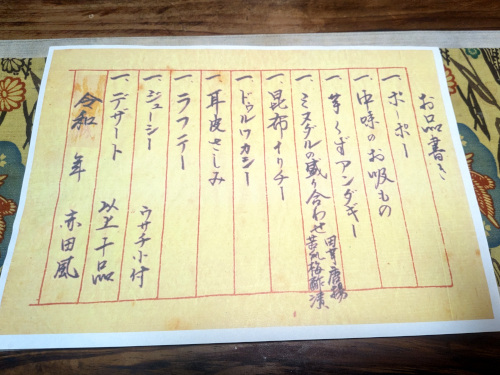 お品書き
一、ポーポー
一、中味のお吸もの
一、芋くずアンダギー
一、ミヌダルの盛り合わせ
田芋唐揚
苦瓜梅酢漬
一、昆布イリチー
一、ドゥルワカシー
一、耳皮さしみ
一、ラフテー
一、ジューシー ウサチ小付
一、デザート 以上十品
令和 年 赤田風